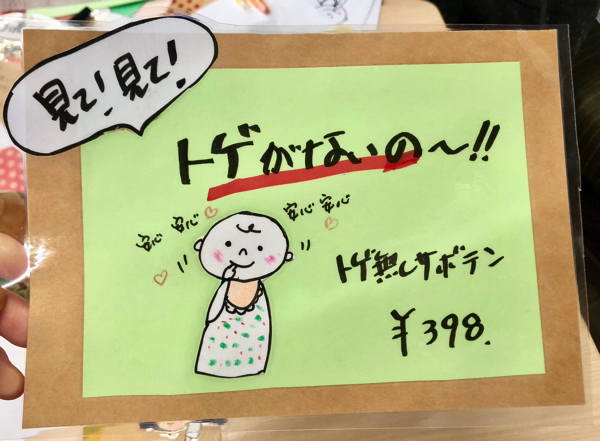 見て!見て!
トゲがないの〜!!
安心 安心
安心 安心
トゲ無しサボテン
¥398.